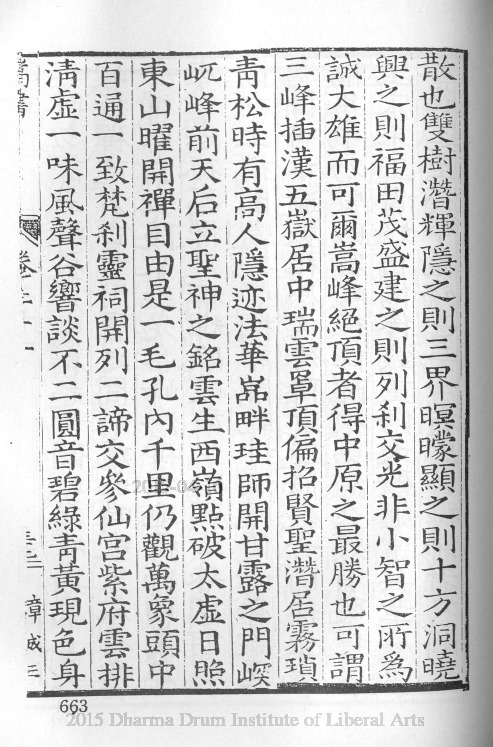 散也雙樹潛輝隱之則三界暝曚顯之則十方洞曉
興之則福田茂盛建之則列刹交光非小智之所為
誠大雄而可爾嵩峰絕頂者得中原之最勝也可謂
三峰插漢五嶽居中瑞雲罩頂偏招賢聖潛居霧瑣
靑松時有高人隱迹法華嵓畔珪師開甘露之門㟮
屼峰前天后立聖神之銘雲生西嶺點破太虛日照
東山曜開禪目由是一毛孔內千里仍觀萬象頭中
百通一致梵刹靈祠開列二諦交參仙宫紫府雲排
淸虛一味風聲谷響談不二圓音碧綠靑黃現色身
嵩書
卷二十一
三二
章成三
663
2015 Dharma Drum Institute of Liberal Arts